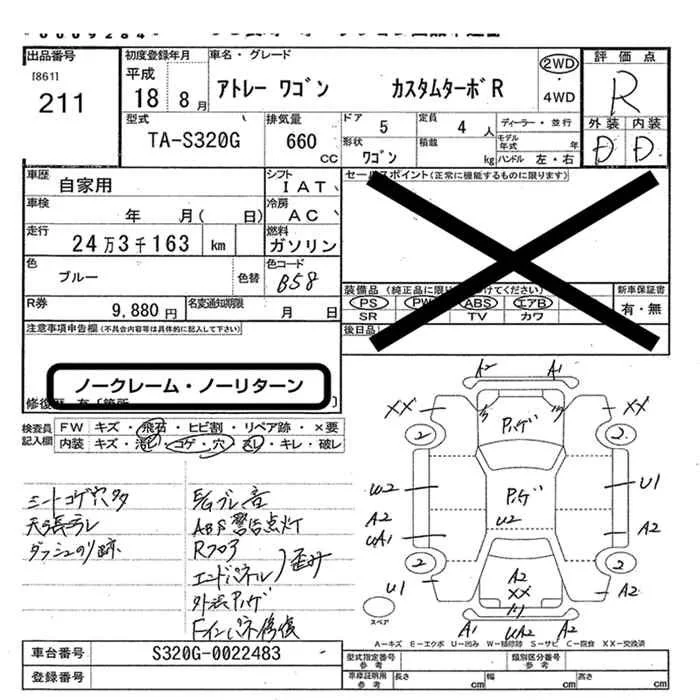 出品番号
[861]
211
初度登録年月
平成
18 8 月
車名・グレード
アトレー ワゴン カスタムターボR
2WD
4WD
評価点
R
外装 内装
D D
型式
TA-S320G
排気量
660
CC
ドア
5
定員
4 人
形状
ワゴン
積載
kg
ディーラー・並行
モデル年式 年
ハンドル 左・右
車歴
自家用
シフト
IAT
車検
年 月( 日)
冷房
AC
走行
24万3千163 km
燃料
ガソリン
色
ブルー
色替
色コード
B58
R券
9,880円
名変通知期限
月 日
セールスポイント(正常に機能するものに限ります)
装備品
PS PW ABS エアB
SR TV カワ
新車保証書
有・無
後日品
注意事項申告欄(不具合内容等は具体的に記入して下さい)
ノークレーム・ノーリターン
検査員記入欄
FW キズ・飛石・ヒビ割・リペア跡・×要
内装 キズ・汚レ・コゲ・穴・スレ・キレ・破レ
シートコゲ穴多
天張ズレ
ダッシュのり跡
E/Gブレ音
ABS警告点灯
Rフロア
エンドパネル
歪み
外装ハゲ
Fインパネ修復
A2 A1
XX XX
2 2
ハゲ
W2
U1
ハゲ
U2
A2
UA1
A2
2 2
U1
A2
XX
A2
スペア
A1 UA2 A2
A−キズ E−エクボ U−凹み W−補修跡 S−サビ C−腐食 XX−交換済
車台番号
S320G-0022483
登録番号
型式指定番号
参考
類別区分番号
参考
車庫証明用
参考
長さ cm
幅 cm
高さ cm